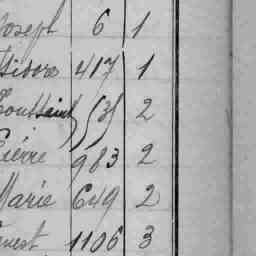 Joseph 6 1
Isidore 417 1
Toussaint 2
Pierre 983 2
Marie 649 2
Ernest 1106 3